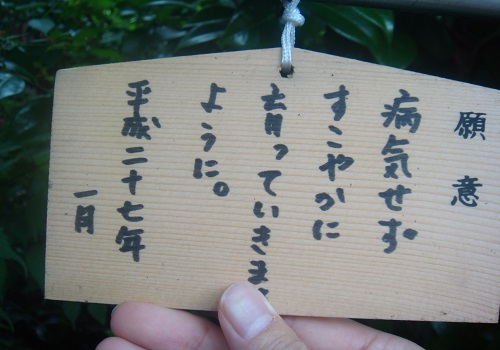 願意
病気せず
すこやかに
育っていきま
ように。
平成二十七年
一月